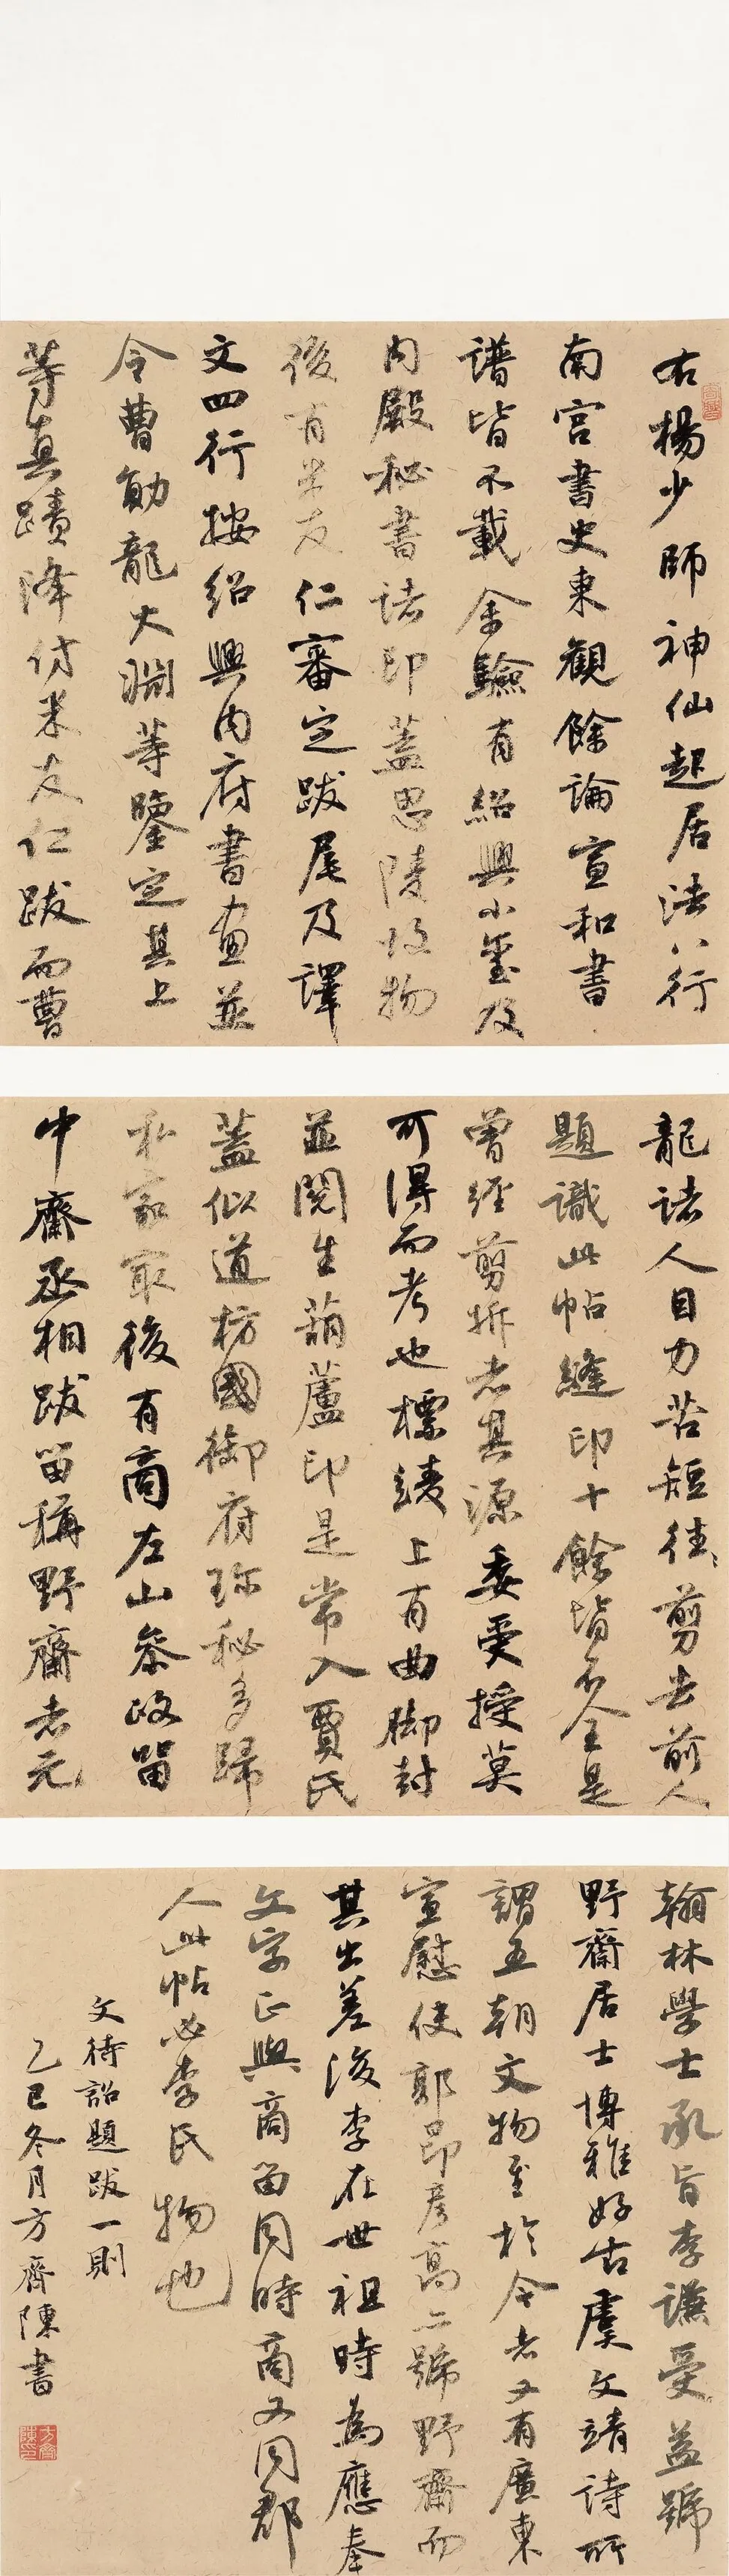 右楊少師神仙起居法八行
南宮書史東觀餘論宣和書
譜皆不載余驗有紹興小璽及
內殿秘書諸印蓋思陵收物
後有米友仁審定跋尾及譯
文四行按紹興內府書畫並
令曹勛龍大淵等鑒定其上
等真蹟降付米友仁跋而曹
龍諸人目力苦短往〻剪去前人
題識此帖縫印十餘皆不全是
曾經剪拆者其源委受授莫
可得而考也標綾上有曲腳封
並閱生葫蘆印是常入賈氏
蓋似道枋國御府珍秘多歸
私家最後有商左山參政留
中齋丞相跋留稱野齋者元
翰林學士承旨李謙受益號
野齋居士博雅好古虞文靖詩所
謂五朝文物至於今者又有廣東
宣慰使郭昂彥高亦號野齋而
其出差後李在世祖時為應奉
文字正與商留同時商又同郡
人此帖必李氏物也
文待詔題跋一則
乙巳冬月方齊陳書